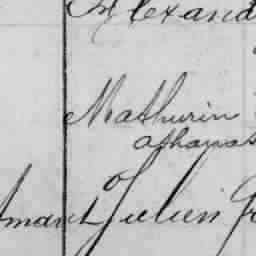 Alexand
Mathurin
athanas
Julien